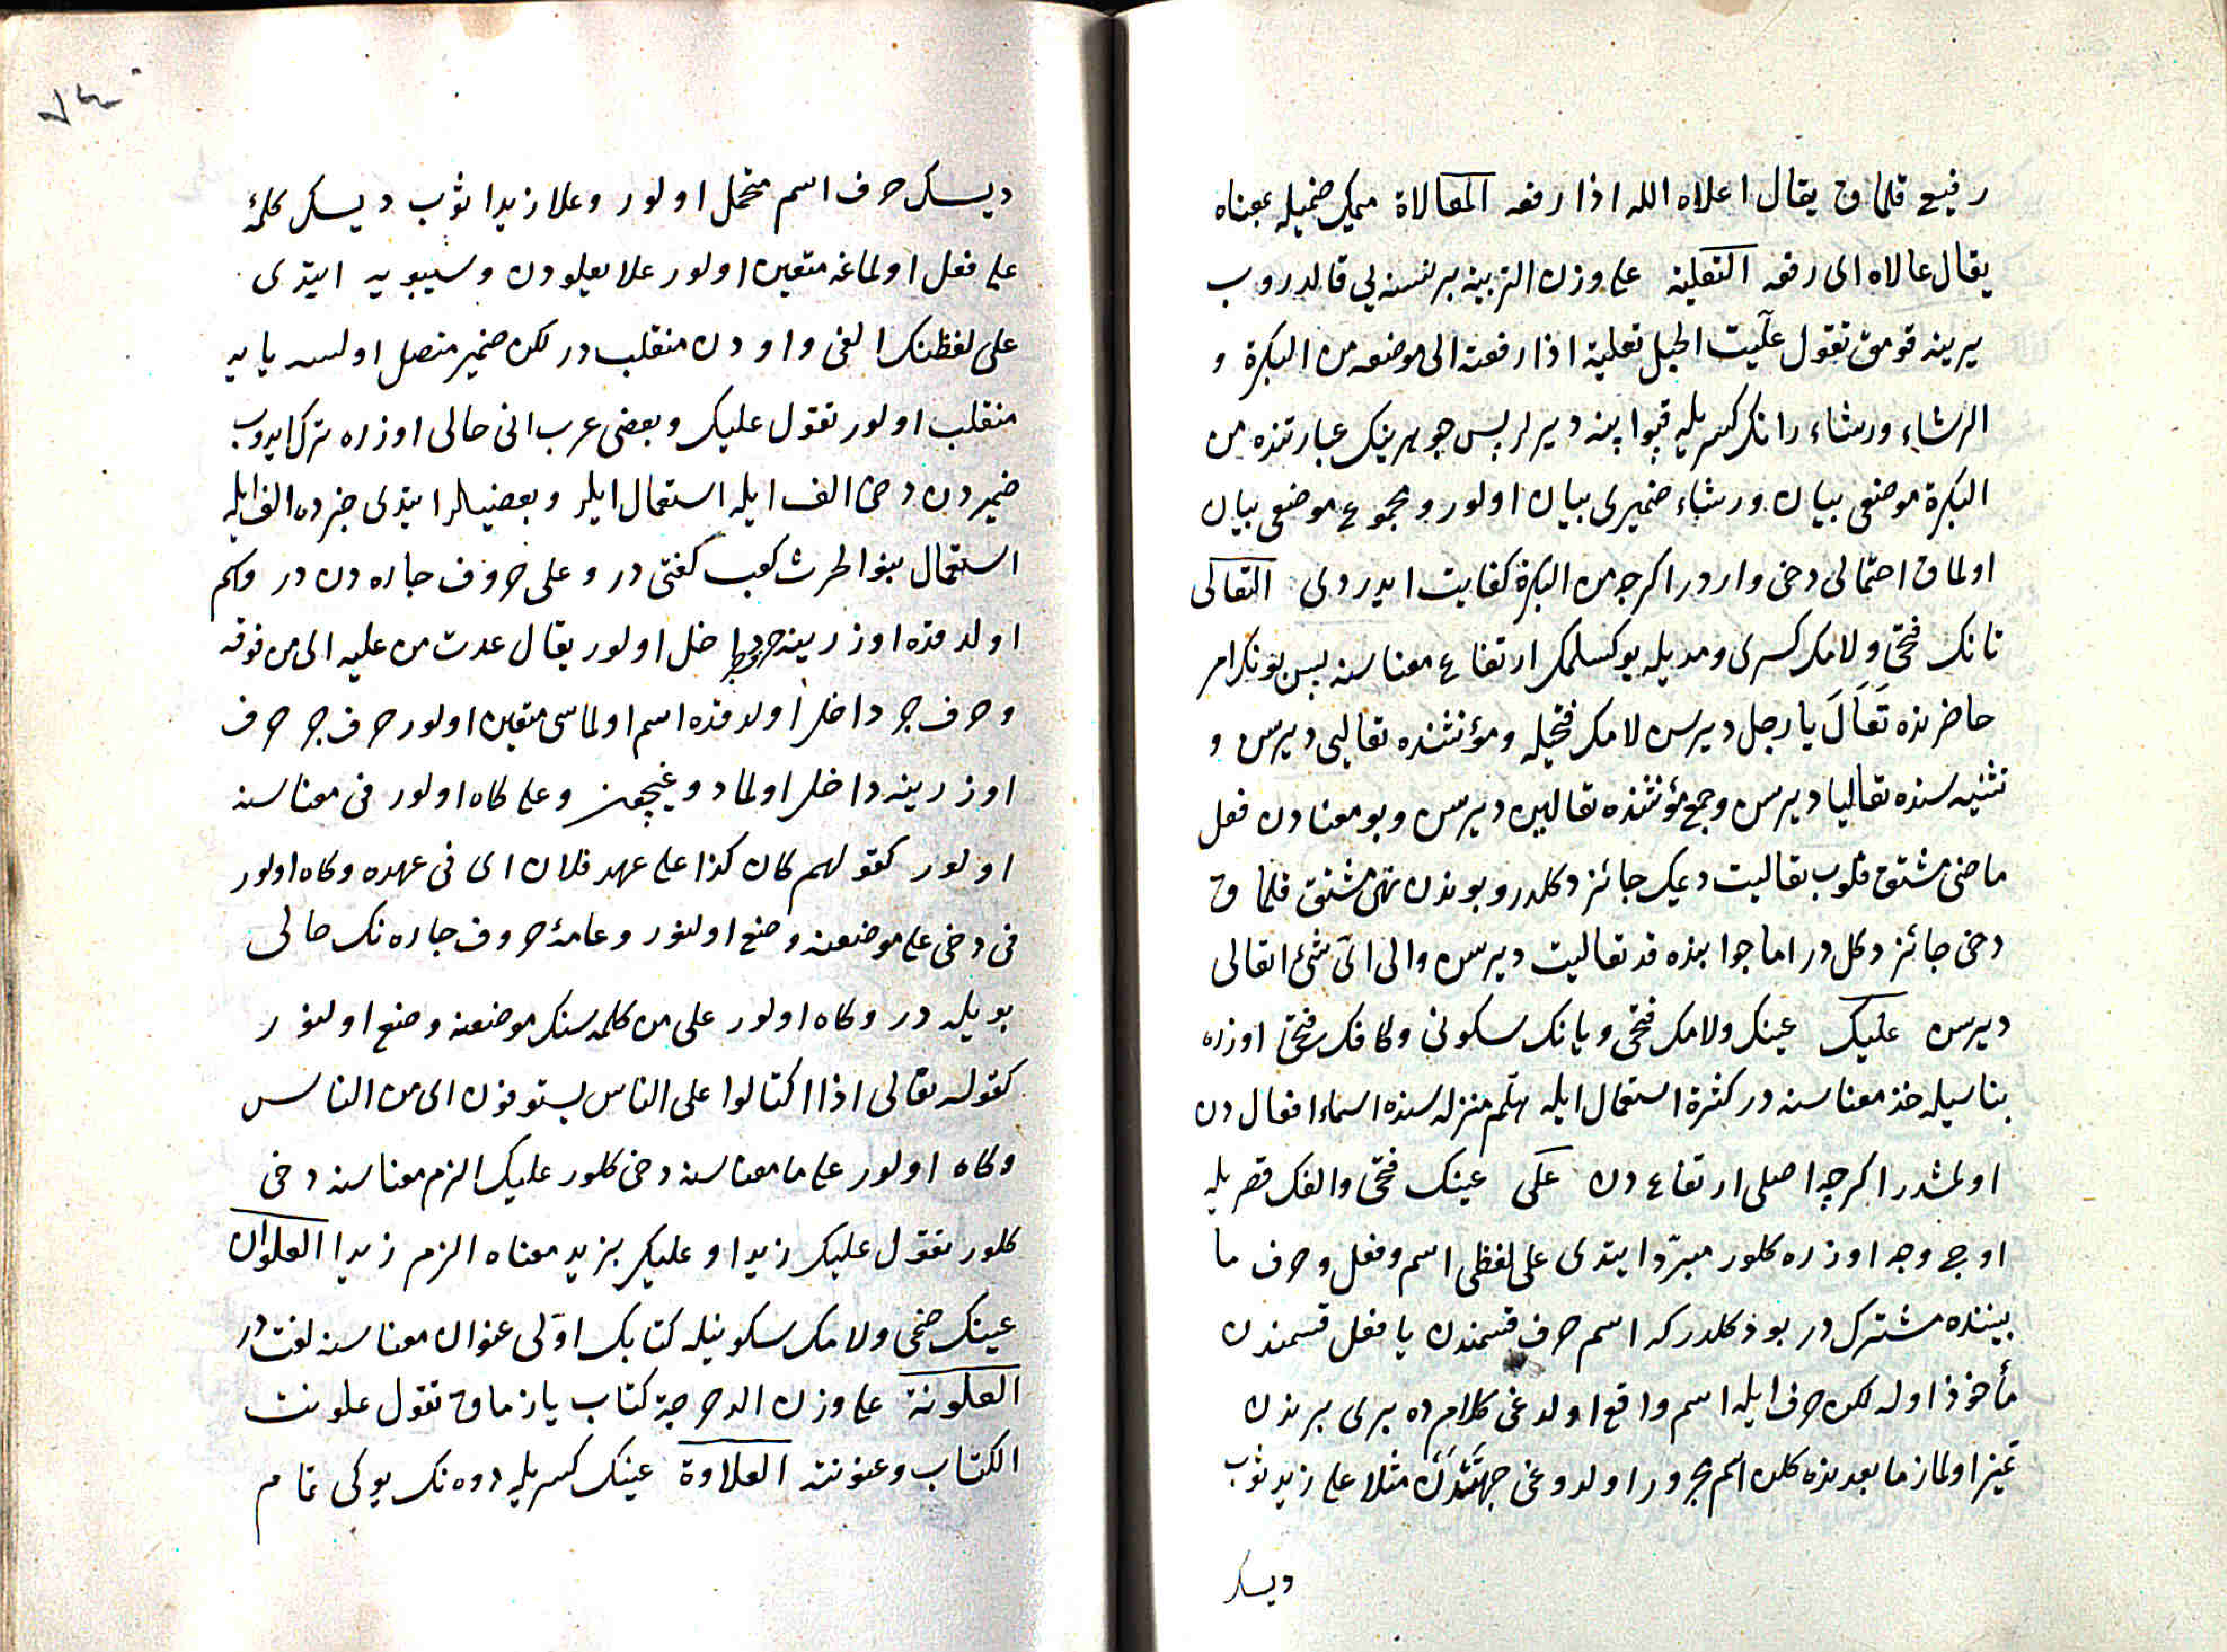 رفيع قلماق يقال اعلاه الله اذا رفعه المعالاة ميمك ضميله بمعناه
يقال عالاه اى رفعه التعلية على وزن التربية بر نسنه يى قالدروب
يرينه قومق تقول علّيت الحبل تعلية اذا رفعته الى موضعه من البكرة و
الرشاء ورشاء رانك كسريله قپوا ايپنه ديرلر پس جوهرينك عبارتنده من
البكرة موضعى بيان ورشاء ضميرى بيان اولور ومجموع موضعى بيان
اولماق احتمالى دخى واردر اكرچه من البكرة كفايت ايدردى التعالى
تانك فتحى ولامك كسرى ومديله يوكسلمك ارتفاع معناسنه پس بونك امر
حاضرنده تَعَالَ يا رجل ديرسن لامك فتحيله ومؤنثنده تعالى ديرسن و
تثنيه سنده تعاليا ديرسن وجمع مؤنثنده تعالين ديرسن وبو معنادن فعل
ماضى مشتق قلوب تعاليت ديمك جائز دكلدر وبوندن نهى مشتق قلماق
دخى جائز دكل در اما جوابنده قد تعاليت ديرسن والى اىّ شئ اتعالى
ديرسن عليك عينك ولامك فتحى ويانك سكونى وكافك فتحى اوزره
بناسيله خذ معناسنه در كثرة استعمال ايله هلمّ منزله سنده اسماء افعال دن
اولمشدر اكرچه اصلى ارتفاع دن على عينك فتحى والفك قصريله
اوچ وجه اوزره كلور مبرّد ايتدى على لفظى اسم وفعل وحرف ما
بيننده مشترك در بو دكلدر كه اسم حرف قسمندن يا فعل قسمندن
مأخوذ اوله لكن حرف ايله اسم واقع اولدغى كلامده برى برندن
تميز اولماز ما بعدنده كلن اسم مجرور اولدوغى جهتدن مثلا على زيد ثوب
ديسك
ديسك حرف اسم محتمل اولور وعلا زيدا ثوب ديسك كلمهٔ
على فعل اولماغه متعين اولور علا يعلودن وسيبويه ايتدى
على لفظنك الفى واودن منقلب در لكن ضمير متصل اولسه يايه
منقلب اولور تقول عليك وبعضى عرب انى حالى اوزره ترك ايدوب
ضميردن دخى الف ايله استعمال ايلر وبعضيلر ايتدى جرده الف ايله
استعمال بنو الحرث كعب لغتى در وعلى حروف جاره دن در واسم
اولدقده اوزرينه حرف جر داخل اولور يقال عدت من عليه اى من فوقه
وحرف جر داخل اولدقده اسم اولماسى متعين اولور حرف جر حرف
اوزرينه داخل اولمادوغيچون وعلى كاه اولور فى معناسنه
اولور كقولهم كان كذا على عهد فلان اى فى عهده وكاه اولور
فى دخى على موضعنه وضع اولنور وعامهٔ حروف جاره نك حالى
بويله در وكاه اولور على من كلمه سنك موضعنه وضع اولنور
كقوله تعالى اذا اكتالوا على الناس يستوفون اى من الناس
وكاه اولور على ما معناسنه دخى كلور عليك الزم معناسنه دخى
كلور تقول عليك زيدا وعليك بزيد معناه الزم زيدا العلوان
عينك ضمى ولامك سكونيله كتابك اوّلى عنوان معناسنه لغت در
العلونة على وزن الدحرجة كتاب يازماق تقول علونت
الكتاب وعنونته العلاوة عينك كسريله دوه نك يوكى تمام